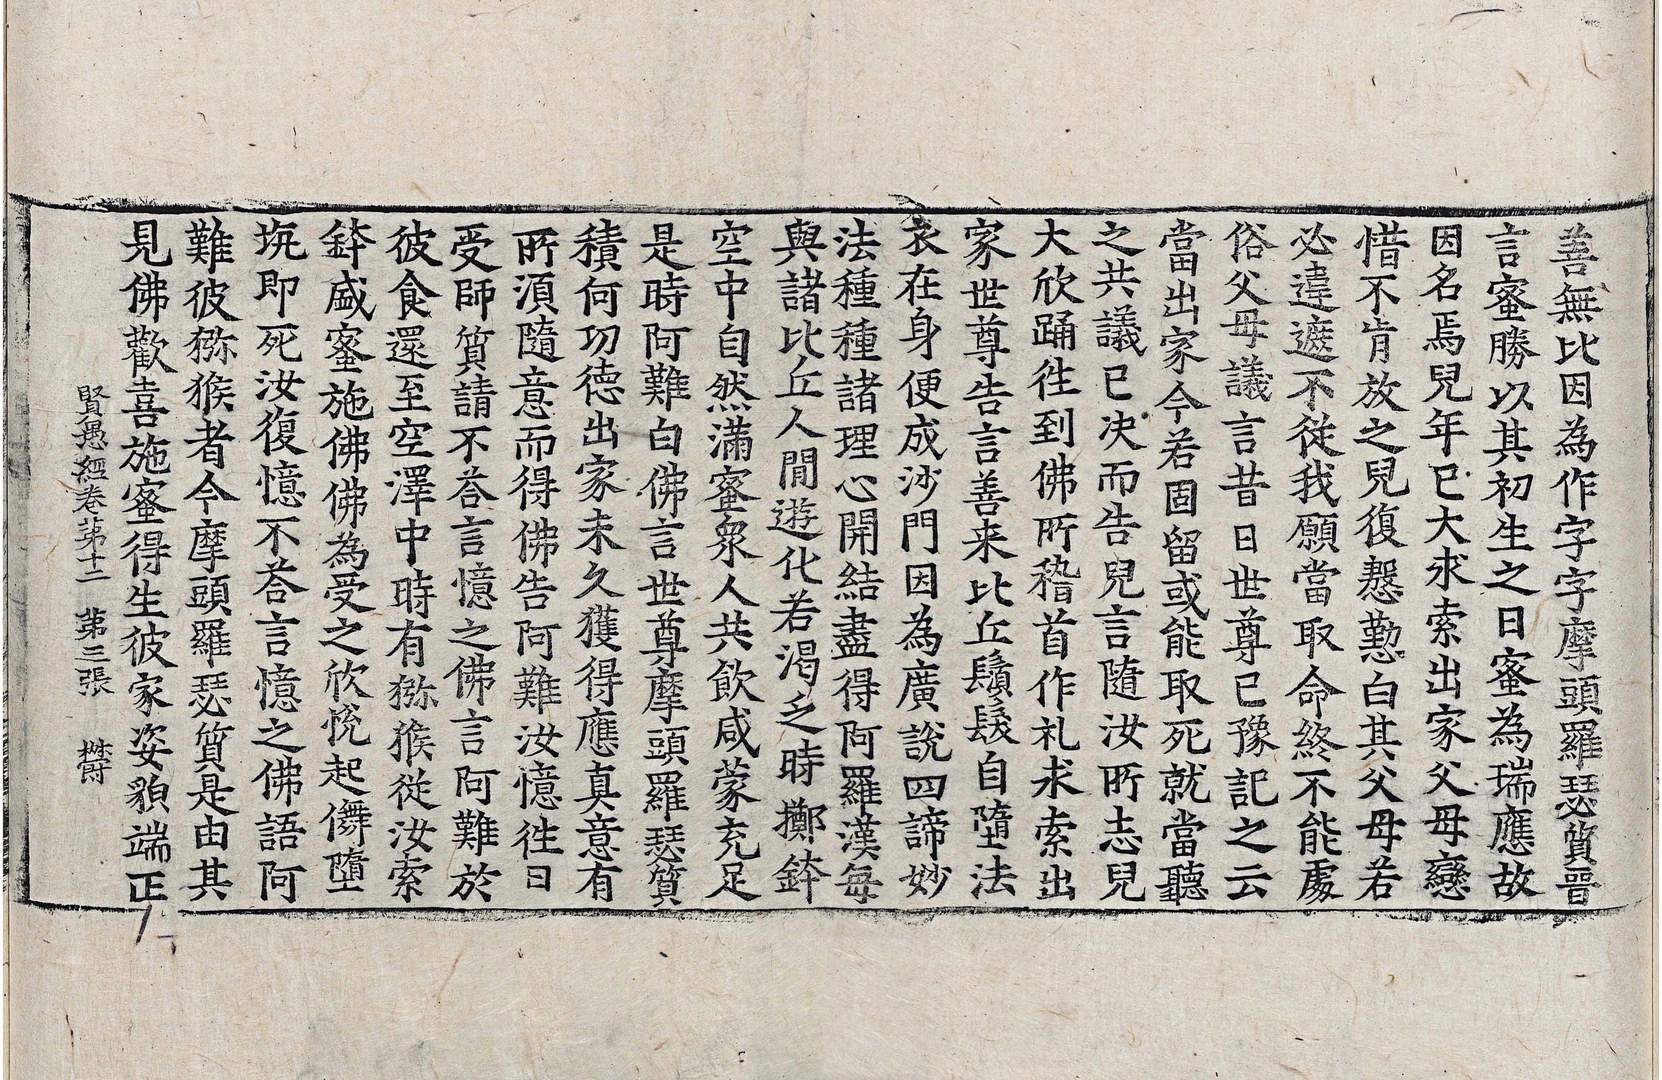 善無比因為作字字摩頭羅瑟質晉
言蜜勝以其初生之日蜜為瑞應故
因名焉兒年已大求索出家父母戀
惜不肯放之兒復慇懃白其父母若
必違遮不從我願當取命終不能處
俗父母議言昔日世尊已豫記之云
當出家今若固留或能取死就當聽
之共議已决而告兒言隨汝所志兒
大欣踊徃到佛所稽首作礼求索出
家世尊告言善来比丘鬚髮自墮法
衣在身便成沙門因為廣說四諦妙
法種種諸理心開結盡得阿羅漢每
與諸比丘人閒遊化若渴乏時擲鉢
空中自然滿蜜衆人共飲咸蒙充足
是時阿難白佛言世尊摩頭羅瑟質
積何功德出家未久獲得應真意有
所湏隨意而得佛告阿難汝憶徃日
受師質請不荅言憶之佛言阿難於
彼食還至空澤中時有獼猴從汝索
鉢盛蜜施佛佛為受之欣悅起儛墮
坑即死汝復憶不荅言憶之佛語阿
難彼獼猴者今摩頭羅瑟質是由其
見佛歡喜施蜜得生彼家姿貌端正
賢愚經卷第十二　第三張